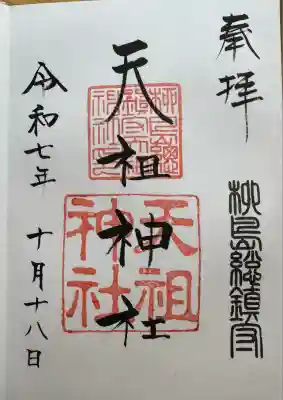 奉拝
柳島総鎮守
天祖神社
天祖神社
令和七年 十月十八日